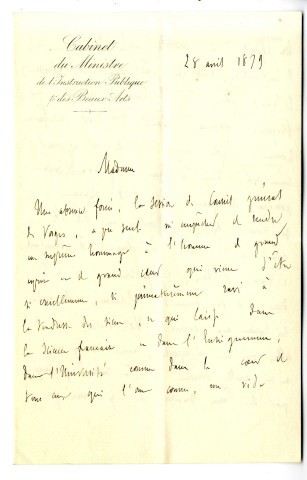 Cabinet
du Ministre
de l'Instruction Publique
& des Beaux-Arts
28 avril 1879
Madame
Une absence forcée, la session du Conseil général
des Vosges, a pu seule m'empêcher de rendre
un suprême hommage à l'homme de grand
esprit et de grand cœur qui vient d'être
si cruellement, si prématurément ravi à
la tendresse des siens, et qui laisse dans
la Science française et dans l'Enseignement,
dans l'Université comme dans le cœur de
tous ceux qui l'ont connu, un vide